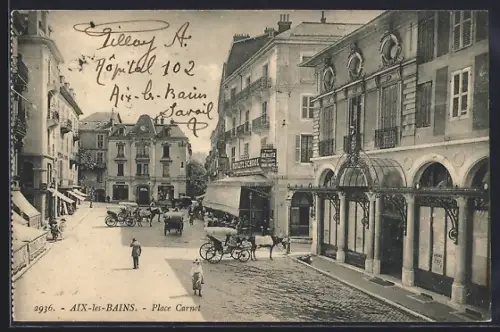 Tilloy A.
Hôpital 102
Aix-les-Bains
Savoie
2936. - AIX-les-BAINS. - Place Carnet